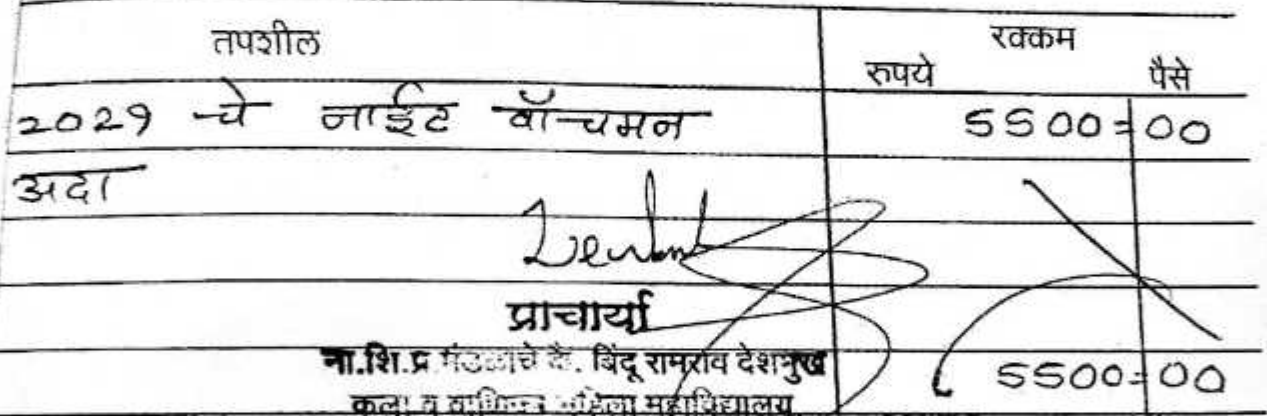 तपशील रक्कम
रुपये पैसे
२०२१ चे नाईट वॉचमन 5500=00
अदा
प्राचार्या
ना.शि.प्र मंडळाचे कै. बिंदू रामराव देशमुख
5500=00
कला व वाणिज्य महिला महाविद्यालय